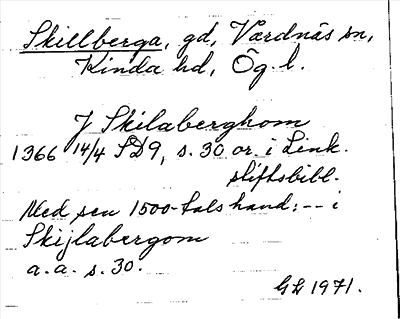 Skillberga, gd, Vårdnäs sn,
Kinda hd, Ög l.
J Skilaberghom
1366 14/4 SD9, s. 30 or. i Link.
stiftsbibl.
Med sen 1500-talshand: -- i
Skijlabergom
a. a. s. 30.
GL 1971.